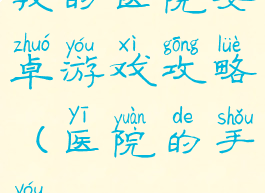 的医院
zhuó yóu xì gōng lüè
卓游戏攻略
yī yuàn de shǒu
(医院的手
yóu